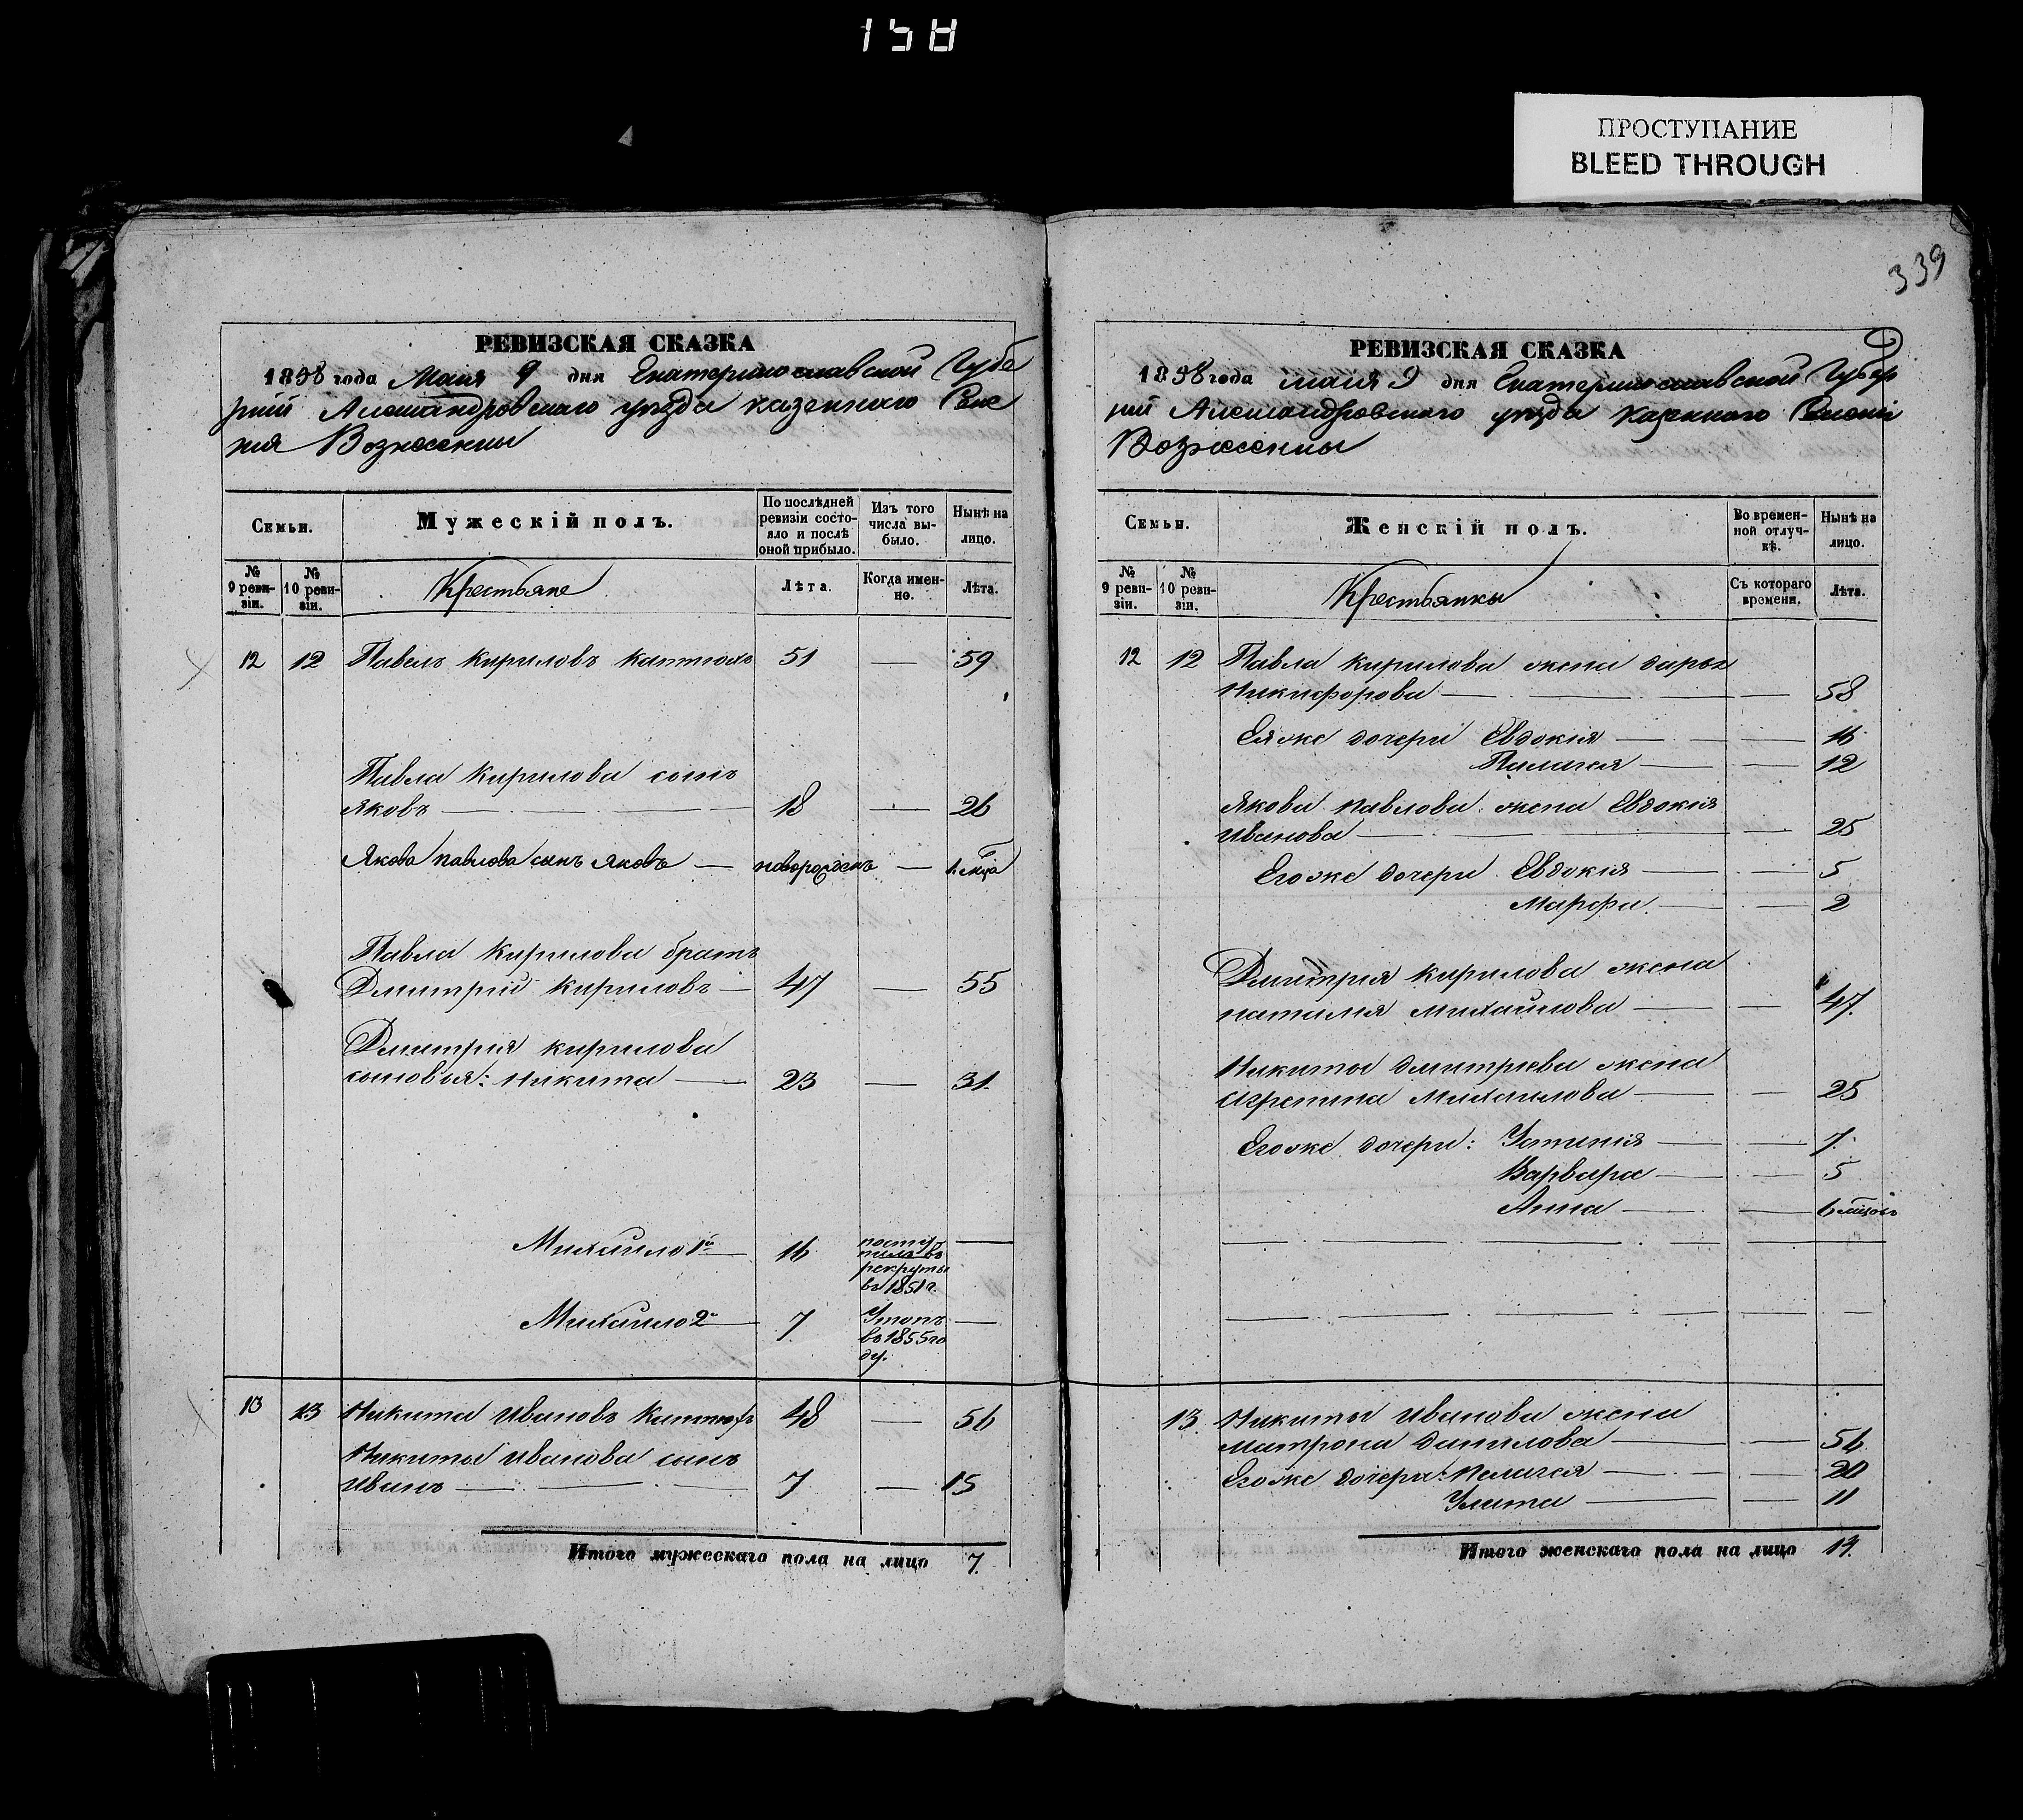 158
ПРОСТУПАНИЕ
BLEED THROUGH
339
РЕВИЗСКАЯ СКАЗКА
1858 года Маия 9 дня Екатеринославской Губе
рнии Александровского уезда казенного Селе
ния Вознесенки
Семьи.
Мужескій полъ.
По послѣдней ревизіи состояло и послѣ оной прибыло.
Изъ того числа выбыло.
Нынѣ на лицо.
№ 9 ревизіи.
№ 10 ревизіи.
Крестьяне
Лѣта.
Когда именно.
Лѣта.
12 12 Павелъ Кириловъ Каптюхъ 51 — 59
Павла Кирилова сынъ
Яковъ — 18 — 26
Якова Павлова сынъ Яковъ — новорожденъ —
Павла Кирилова братъ
Дмитрий Кириловъ — 47 — 55
Дмитрия Кирилова
сыновья: Никита — 23 — 31
Михаило 1й 16 поступилъ въ рекруты въ 1851 г. —
Михаило 2й 7 Утопъ въ 1855 году. —
13 13 Никита Ивановъ Каптюхъ 48 — 56
Никиты Иванова сынъ
Иванъ — 7 — 15
Итого мужескаго пола на лицо 7.
РЕВИЗСКАЯ СКАЗКА
1858 года маия 9 дня Екатеринославской Губер
нии Александровского уезда казенного Селения
Вознесенки
Семьи.
Женскій полъ.
Во временной отлучкѣ.
Нынѣ на лицо.
№ 9 ревизіи.
№ 10 ревизіи.
Крестьянки
Съ котораго времени.
Лѣта.
12 12 Павла Кирилова жена Дарья
Никифорова — — 58
Ея же дочери Евдокия — — 16
Пелагея — — 12
Якова Павлова жена Евдокия
Иванова — — 25
Его же дочери Евдокия — — 5
Марфа — — 2
Дмитрия Кирилова жена
Наталия Михайлова — — 47
Никиты Дмитриева жена
Агрепина Михаилова — — 25
Его же дочери: Устиния — — 7
Варвара — — 5
Анна — — 6
13 Никиты Иванова жена
Матрона Данилова — — 56
Его же дочери: Пелагея — — 20
Улита — — 11
Итого женскаго пола на лицо 14.